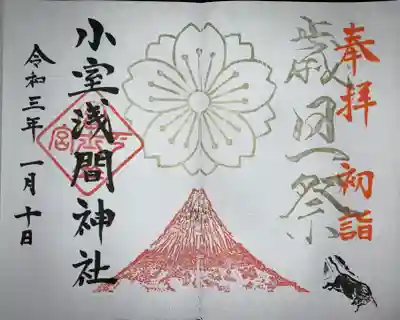 奉拝 初詣
歳旦祭
小室浅間神社
下宮
令和三年一月十日